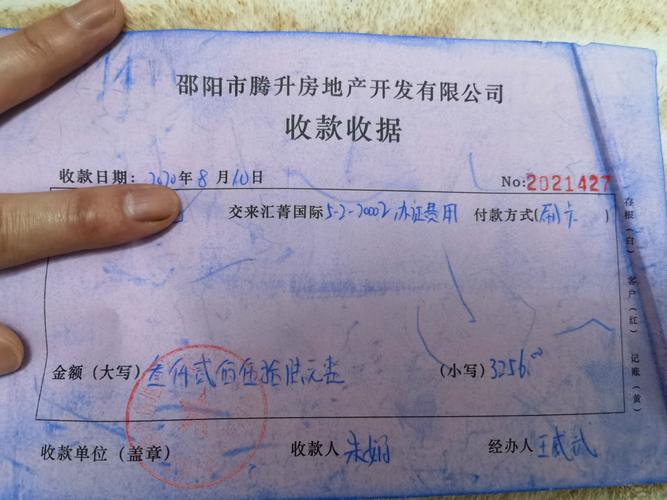 邵阳市腾升房地产开发有限公司
收款收据
收款日期：2020年8月10日 No:2021427
交来汇菁国际5-2-2002办证费用 付款方式(刷卡)
金额（大写）叁仟贰佰伍拾陆元整 （小写）3256.00
收款单位（盖章） 收款人 朱 经办人 王威武
存根（白） 客户（红） 记账（黄）